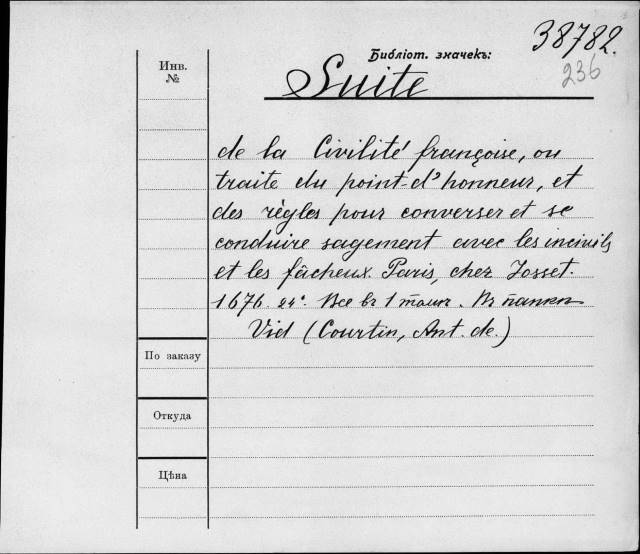 38782.
Библіот. значекъ:
236
Инв.
№
Suite
de la Civilité françoise, ou
traite du point-d'honneur, et
des règles pour converser et se
conduire sagement avec les incivils
et les fâcheux. Paris, chez Josset.
1676. 24°. Все въ 1 томѣ. Въ папкѣ
Vid (Courtin, Ant. de.)
По заказу
Откуда
Цѣна